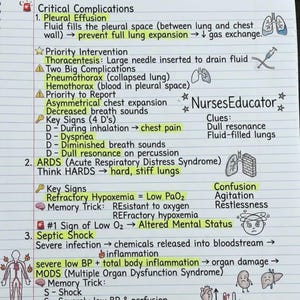 Critical Complications
1. Pleural Effusion
Fluid fills the pleural space (between lung and chest
wall) → prevent full lung expansion → ↓ gas exchange.
Priority Intervention
Thoracentesis: Large needle inserted to drain fluid
Two Big Complications
Pneumothorax (collapsed lung)
Hemothorax (blood in pleural space)
Priority to Report
Asymmetrical chest expansion
Decreased breath sounds
NursesEducator
Key Signs (4 D's)
D - During inhalation → chest pain
D - Dyspnea
D - Diminished breath sounds
D - Dull resonance on percussion
Clues:
Dull resonance
Fluid-filled lungs
2. ARDS (Acute Respiratory Distress Syndrome)
Think HARDS → hard, stiff lungs
Key Signs
Refractory Hypoxemia = Low PaO₂
Memory Trick: REsistant to oxygen
REfractory hypoxemia
Confusion
Agitation
Restlessness
#1 Sign of Low O₂ → Altered Mental Status
3. Septic Shock
Severe infection → chemicals released into bloodstream →
inflammation
severe low BP + total body inflammation → organ damage →
MODS (Multiple Organ Dysfunction Syndrome)
Memory Trick:
S - Shock